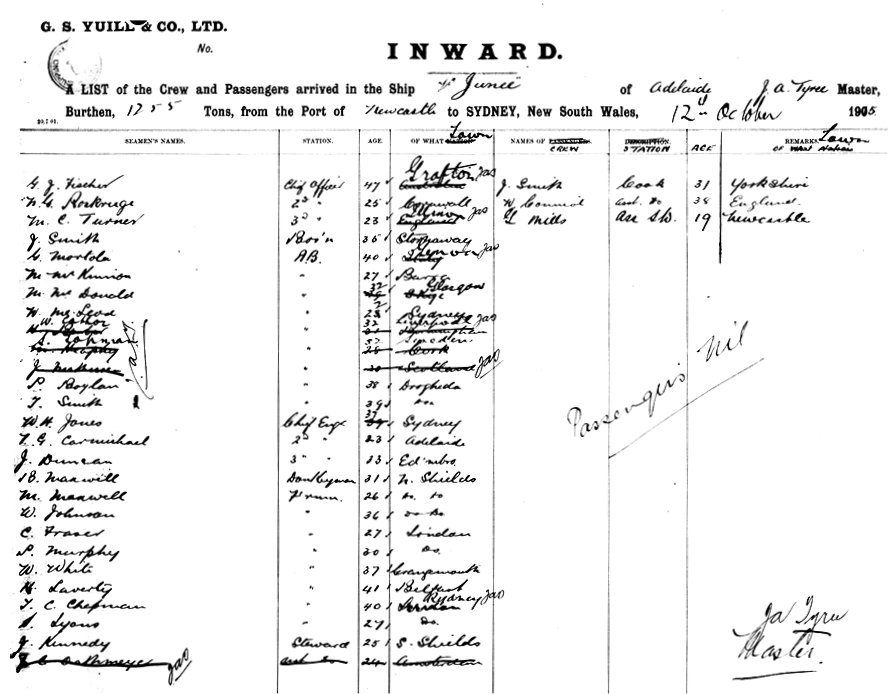 G. S. YUILL & CO., LTD.
No.
INWARD.
A LIST of the Crew and Passengers arrived in the Ship Junee of Adelaide J. A. Tyree Master,
Burthen, 1255 Tons, from the Port of Newcastle to SYDNEY, New South Wales, 12th October 1905
SEAMEN'S NAMES. STATION. AGE OF WHAT NATION Town NAMES OF PASSENGERS CREW DESCRIPTION. STATION AGE REMARKS. Town OF WHAT Nation
G. J. Fischer Chief Officer 47 Grafton J. Smith Cook 31 Yorkshire
Roskruge 2nd " 25 Cornwall W. 38 England
M. C. Turner 3rd " 23 England G. Mills 19 Newcastle
J. Smith Bos'n 35
G. Mortola A.B. 40 Italy
" 27
M. Mc Donald " 32 Glasgow
W. McLeod " 28 Sydney
W. " 32 Liverpool
S. " 37
M. Murphy 28 Cork
J. " Scotland
P. Boylan " 38 Drogheda
T. Smith " 39 do.
W. H. Jones Chief Engr 37 Sydney
T. G. Carmichael 2nd " 23 Adelaide
J. Duncan 3rd " 23 Ed'nbro
B. Maxwell Donkeyman 31 N. Shields
M. Maxwell F'rman. 26 do. do
W. Johnson " 36 do do.
C. Fraser " 27 London
P. Murphy " 30 do.
W. White " 37 Grangemouth
H. Laverty " 41 Belfast
T. C. Chapman " 40 Sydney London
S. Lyons " 27 do.
J. Kennedy Steward 25 S. Shields
24 Amsterdam
Passengers Nil
J A Tyree
Master.